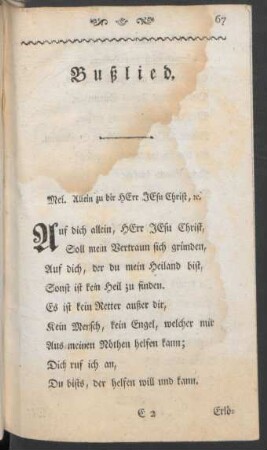 67
Bußlied.
Mel. Allein zu dir HErr JEsu Christ, ꝛc.
Auf dich allein, HErr JEsu Christ,
Soll mein Vertraun sich gründen,
Auf dich, der du mein Heiland bist,
Sonst ist kein Heil zu finden.
Es ist kein Retter außer dir,
Kein Mensch, kein Engel, welcher mir
Aus meinen Nöthen helfen kann;
Dich ruf ich an,
Du bists, der helfen will und kann.
E 2 Erlö-